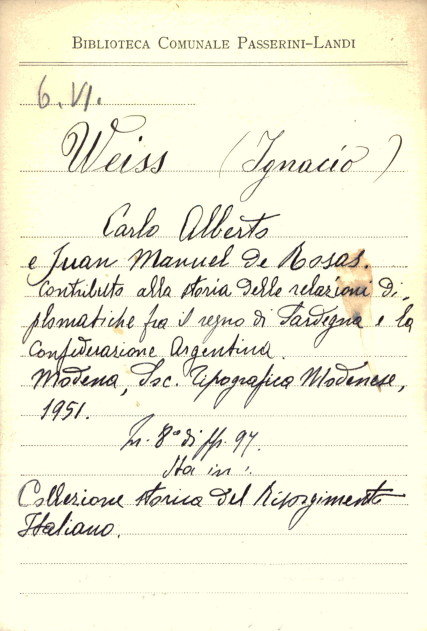 BIBLIOTECA COMUNALE PASSERINI-LANDI
6. VI.
Weiss (Ignacio)
Carlo Alberto
e Juan Manuel de Rosas.
Contributo alla storia delle relazioni di
plomatiche fra il regno di Sardegna e la
Confederazione Argentina.
Modena, Soc. Tipografica Modenese,
1951.
In. 8° di pp. 97.
Sta in:
Collezione storica del Risorgimento
Italiano.